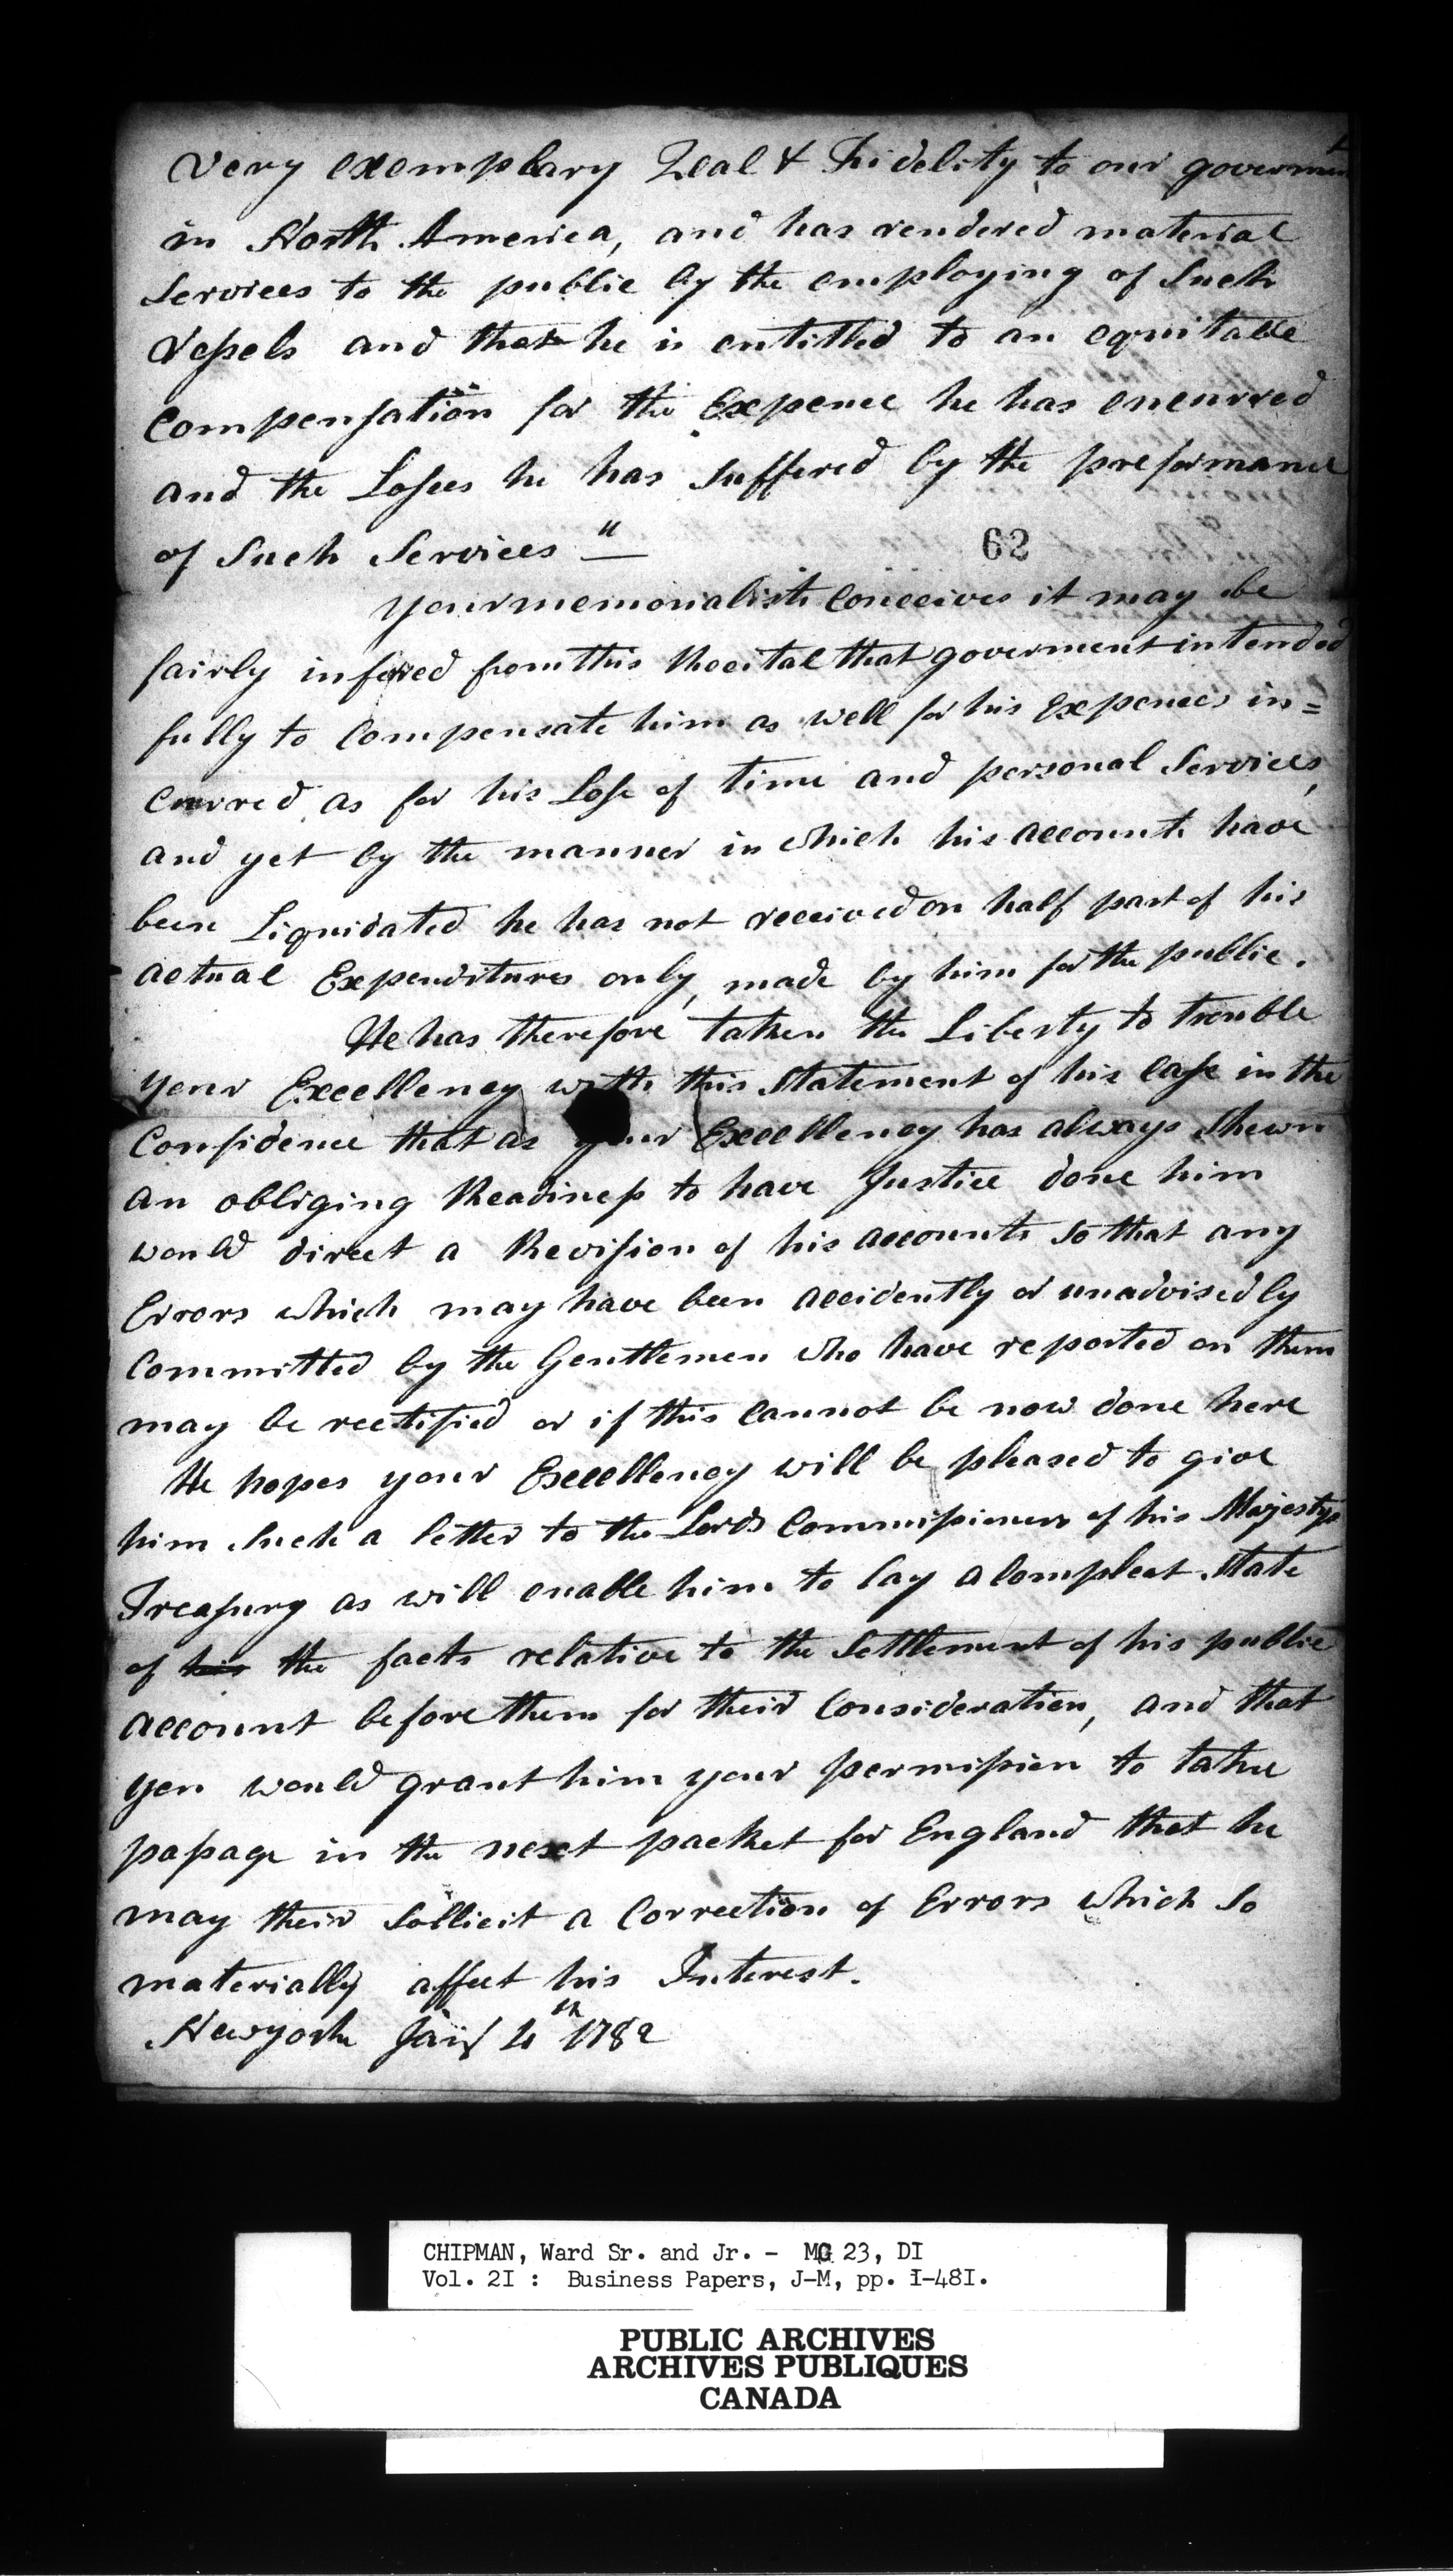 very exemplary Zeal & Fidelity to our government
in North America, and has rendered material
Services to the public by the employing of Such
Vessels and that he is entitled to an equitable
Compensation for the Expence he has encurred
and the Losses he has Suffered by the preformance
of Such Services "
62
Your memorialist Conceives it may be
fairly infered from this Recital that goverment intended
fully to Compensate him as well for his Expences in=
curred as for his Loss of time and personal Services,
and yet by the manner in which his accounts have
been Liquidated he has not received on half part of his
actual Expenditures only, made by him for the public.
He has therefore taken the Liberty to trouble
your Excellency with this Statement of his Case in the
Confidence that as your Excellency has always Shewn
an obliging Readiness to have Justice done him
would direct a Revision of his accounts so that any
Errors which may have been accidently or unadvisedly
Committed by the Gentlemen who have reported on them
may be rectified or if this cannot be now done here
He hopes your Excellency will be pleased to give
him Such a letter to the Lords Commissioners of his Majestys
Treasury as will enable him to lay a Compleat State
of his the facts relative to the Settlement of his public
account before them for their Consideration, and that
you would grant him your permission to take
passage in the next packet for England that he
may their Sollicit a Correction of Errors which So
materially affect his Interest.
Newyork Jany 4th 1782
CHIPMAN, Ward Sr. and Jr. - MG 23, DI
Vol. 2I : Business Papers, J-M, pp. I-48I.
PUBLIC ARCHIVES
ARCHIVES PUBLIQUES
CANADA